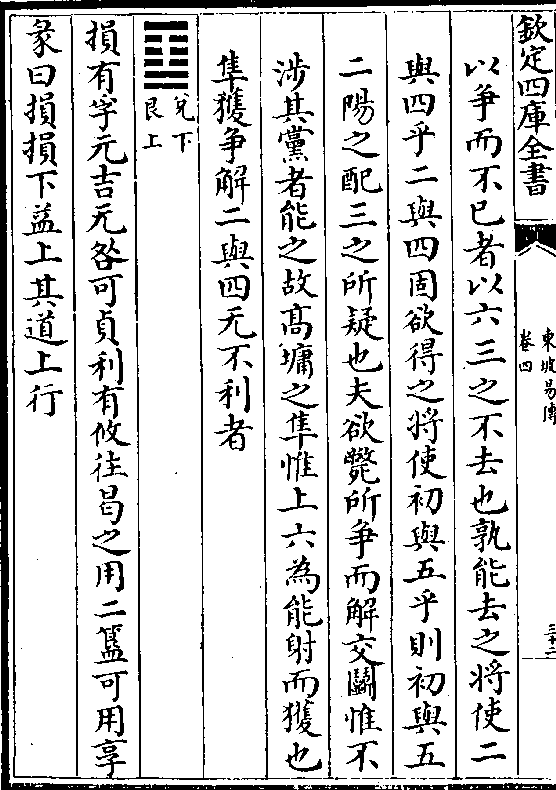 欽定四庫全書
東坡易傳
卷四
三十二
以爭而不已者以六三之不去也孰能去之將使二
與四乎二與四固欲得之將使初與五乎則初與五
二陽之配三之所疑也夫欲斃所爭而解交鬭惟不
涉其黨者能之故髙墉之隼惟上六為能射而獲也
隼獲爭解二與四无不利者
兌下
艮上
損有孚元吉无咎可貞利有攸往曷之用二簋可用享
彖曰損損下益上其道上行